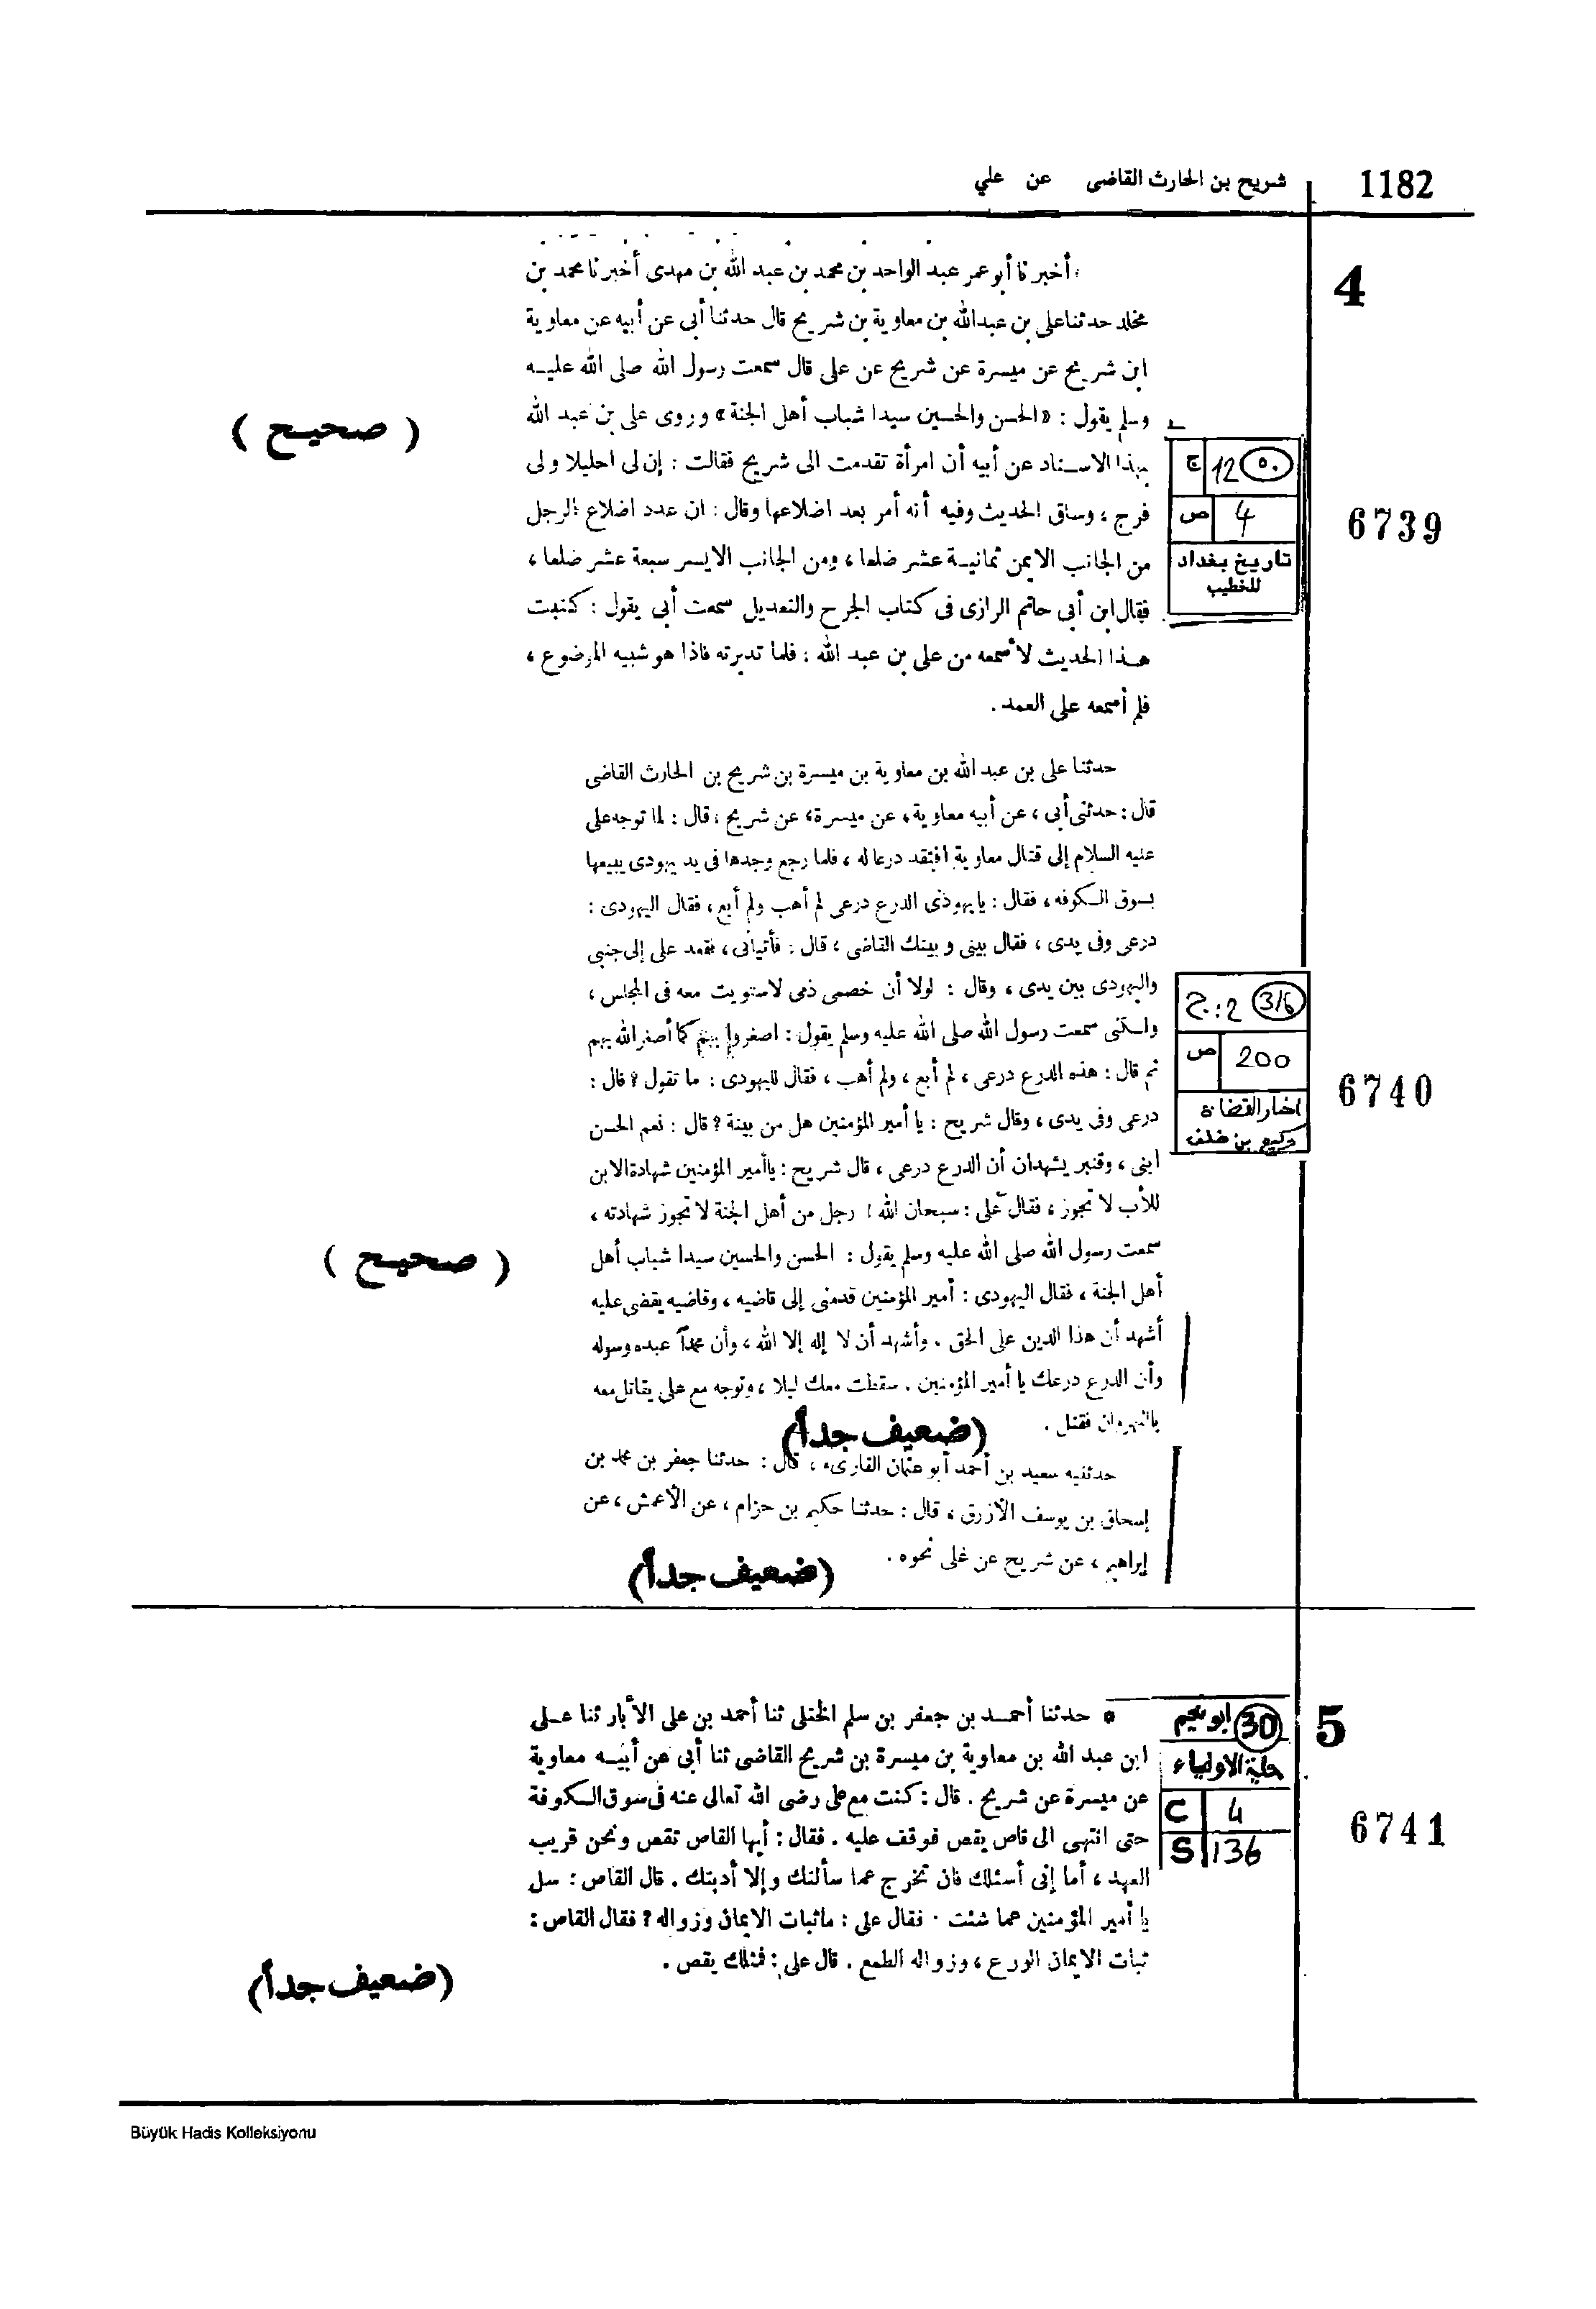 1182
شريح بن الحارث القاضى عن علي
4
أخبرنا أبو عمر عبد الواحد بن محمد بن عبد الله بن مهدى أخبرنا محمد بن
مخلد حدثنا على بن عبدالله بن معاوية بن شريح قال حدثنا أبى عن أبيه عن معاوية
ابن شريح عن ميسرة عن شريح عن على قال سمعت رسول الله صلى الله عليه
وسلم يقول : «الحسن والحسين سيدا شباب أهل الجنة» وروى على بن عبد الله
( صحيح )
بهذا الاسناد عن أبيه أن امرأة تقدمت الى شريح فقالت : إن لى احليلا ولى
فرج ، وساق الحديث وفيه أنه أمر بعد اضلاعها وقال : ان عدد اضلاع الرجل
من الجانب الايمن ثمانية عشر ضلعا ، ومن الجانب الايسر سبعة عشر ضلعا ،
فقال ابن أبى حاتم الرازى فى كتاب الجرح والتعديل سمعت أبى يقول : كتبت
هذا الحديث لأسمعه من على بن عبد الله : فلما تدبرته فاذا هو شبيه الموضوع ،
فلم أسمعه على العمد .
ج 12 ٥٠
ص 4
تاريخ بغداد
للخطيب
6739
حدثنا على بن عبد الله بن معاوية بن ميسرة بن شريح بن الحارث القاضى
قال : حدثنى أبى ، عن أبيه معاوية ، عن ميسرة ، عن شريح ، قال : لما توجه على
عليه السلام إلى قتال معاوية افتقد درعا له ، فلما رجع وجدها فى يد يهودى يبيعها
بسوق الكوفه ، فقال : يا يهودى الدرع درعى لم أهب ولم أبع ، فقال اليهودى :
درعى وفى يدى ، فقال بينى وبينك القاضى ، قال : فأتيانى ، فقعد على إلى جنبى
واليهودى بين يدى ، وقال : لولا أن خصمى ذمى لاستويت معه فى المجلس ،
ولكنى سمعت رسول الله صلى الله عليه وسلم يقول : اصغروا بهم كما أصغر الله بهم
ثم قال : هذه الدرع درعى ، لم أبع ، ولم أهب ، فقال لليهودى : ما تقول ؟ قال :
درعى وفى يدى ، وقال شريح : يا أمير المؤمنين هل من بينة ؟ قال : نعم الحسن
ابنى ، وقنبر يشهدان أن الدرع درعى ، قال شريح : يا أمير المؤمنين شهادة الابن
للأب لا تجوز ، فقال على : سبحان الله ! رجل من أهل الجنة لا تجوز شهادته ،
سمعت رسول الله صلى الله عليه وسلم يقول : الحسن والحسين سيدا شباب أهل
( صحيح )
أهل الجنة ، فقال اليهودى : أمير المؤمنين قدمنى إلى قاضيه ، وقاضيه يقضى عليه
أشهد أن هذا الدين على الحق . وأشهد أن لا إله إلا الله ، وأن محمداً عبده وسوله
وأن الدرع درعك يا أمير المؤمنين . سقطت معك ليلا ، وتوجه مع على يقاتل معه
بالنهروان فقتل .
(ضعيف جداً)
حدثنيه سعيد بن أحمد أبو عثمان القارىء ، قال : حدثنا جعفر بن محمد بن
إسحاق بن يوسف الأزرق ، قال : حدثنا حكيم بن حزام ، عن الأعمش ، عن
إبراهيم ، عن شريح عن على نحوه .
(ضعيف جداً)
ج : 2 3/6
ص 200
اخبار القضاة
وكيع بن خلف
6740
5
* حدثنا أحمد بن جعفر بن سلم الختلى ثنا أحمد بن على الأبار ثنا على
ابن عبد الله بن معاوية بن ميسرة بن شريح القاضى ثنا أبى عن أبيه معاوية
عن ميسرة عن شريح . قال : كنت مع على رضى الله تعالى عنه فى سوق الكوفة
حتى انتهى الى قاص يقص فوقف عليه . فقال : أيها القاص تقص ونحن قريب
العهد ، أما إنى أسئلك فان تخرج عما سألتك وإلا أدبتك . قال القاص : سل
يا أمير المؤمنين عما شئت . فقال على : ماثبات الايمان وزواله ؟ فقال القاص :
ثبات الايمان الورع ، وزواله الطمع . قال على : فمثلك يقص .
(ضعيف جداً)
ابو نعيم 30
حلية الاولياء
C 4
S 136
6741
Büyük Hadis Kolleksiyonu